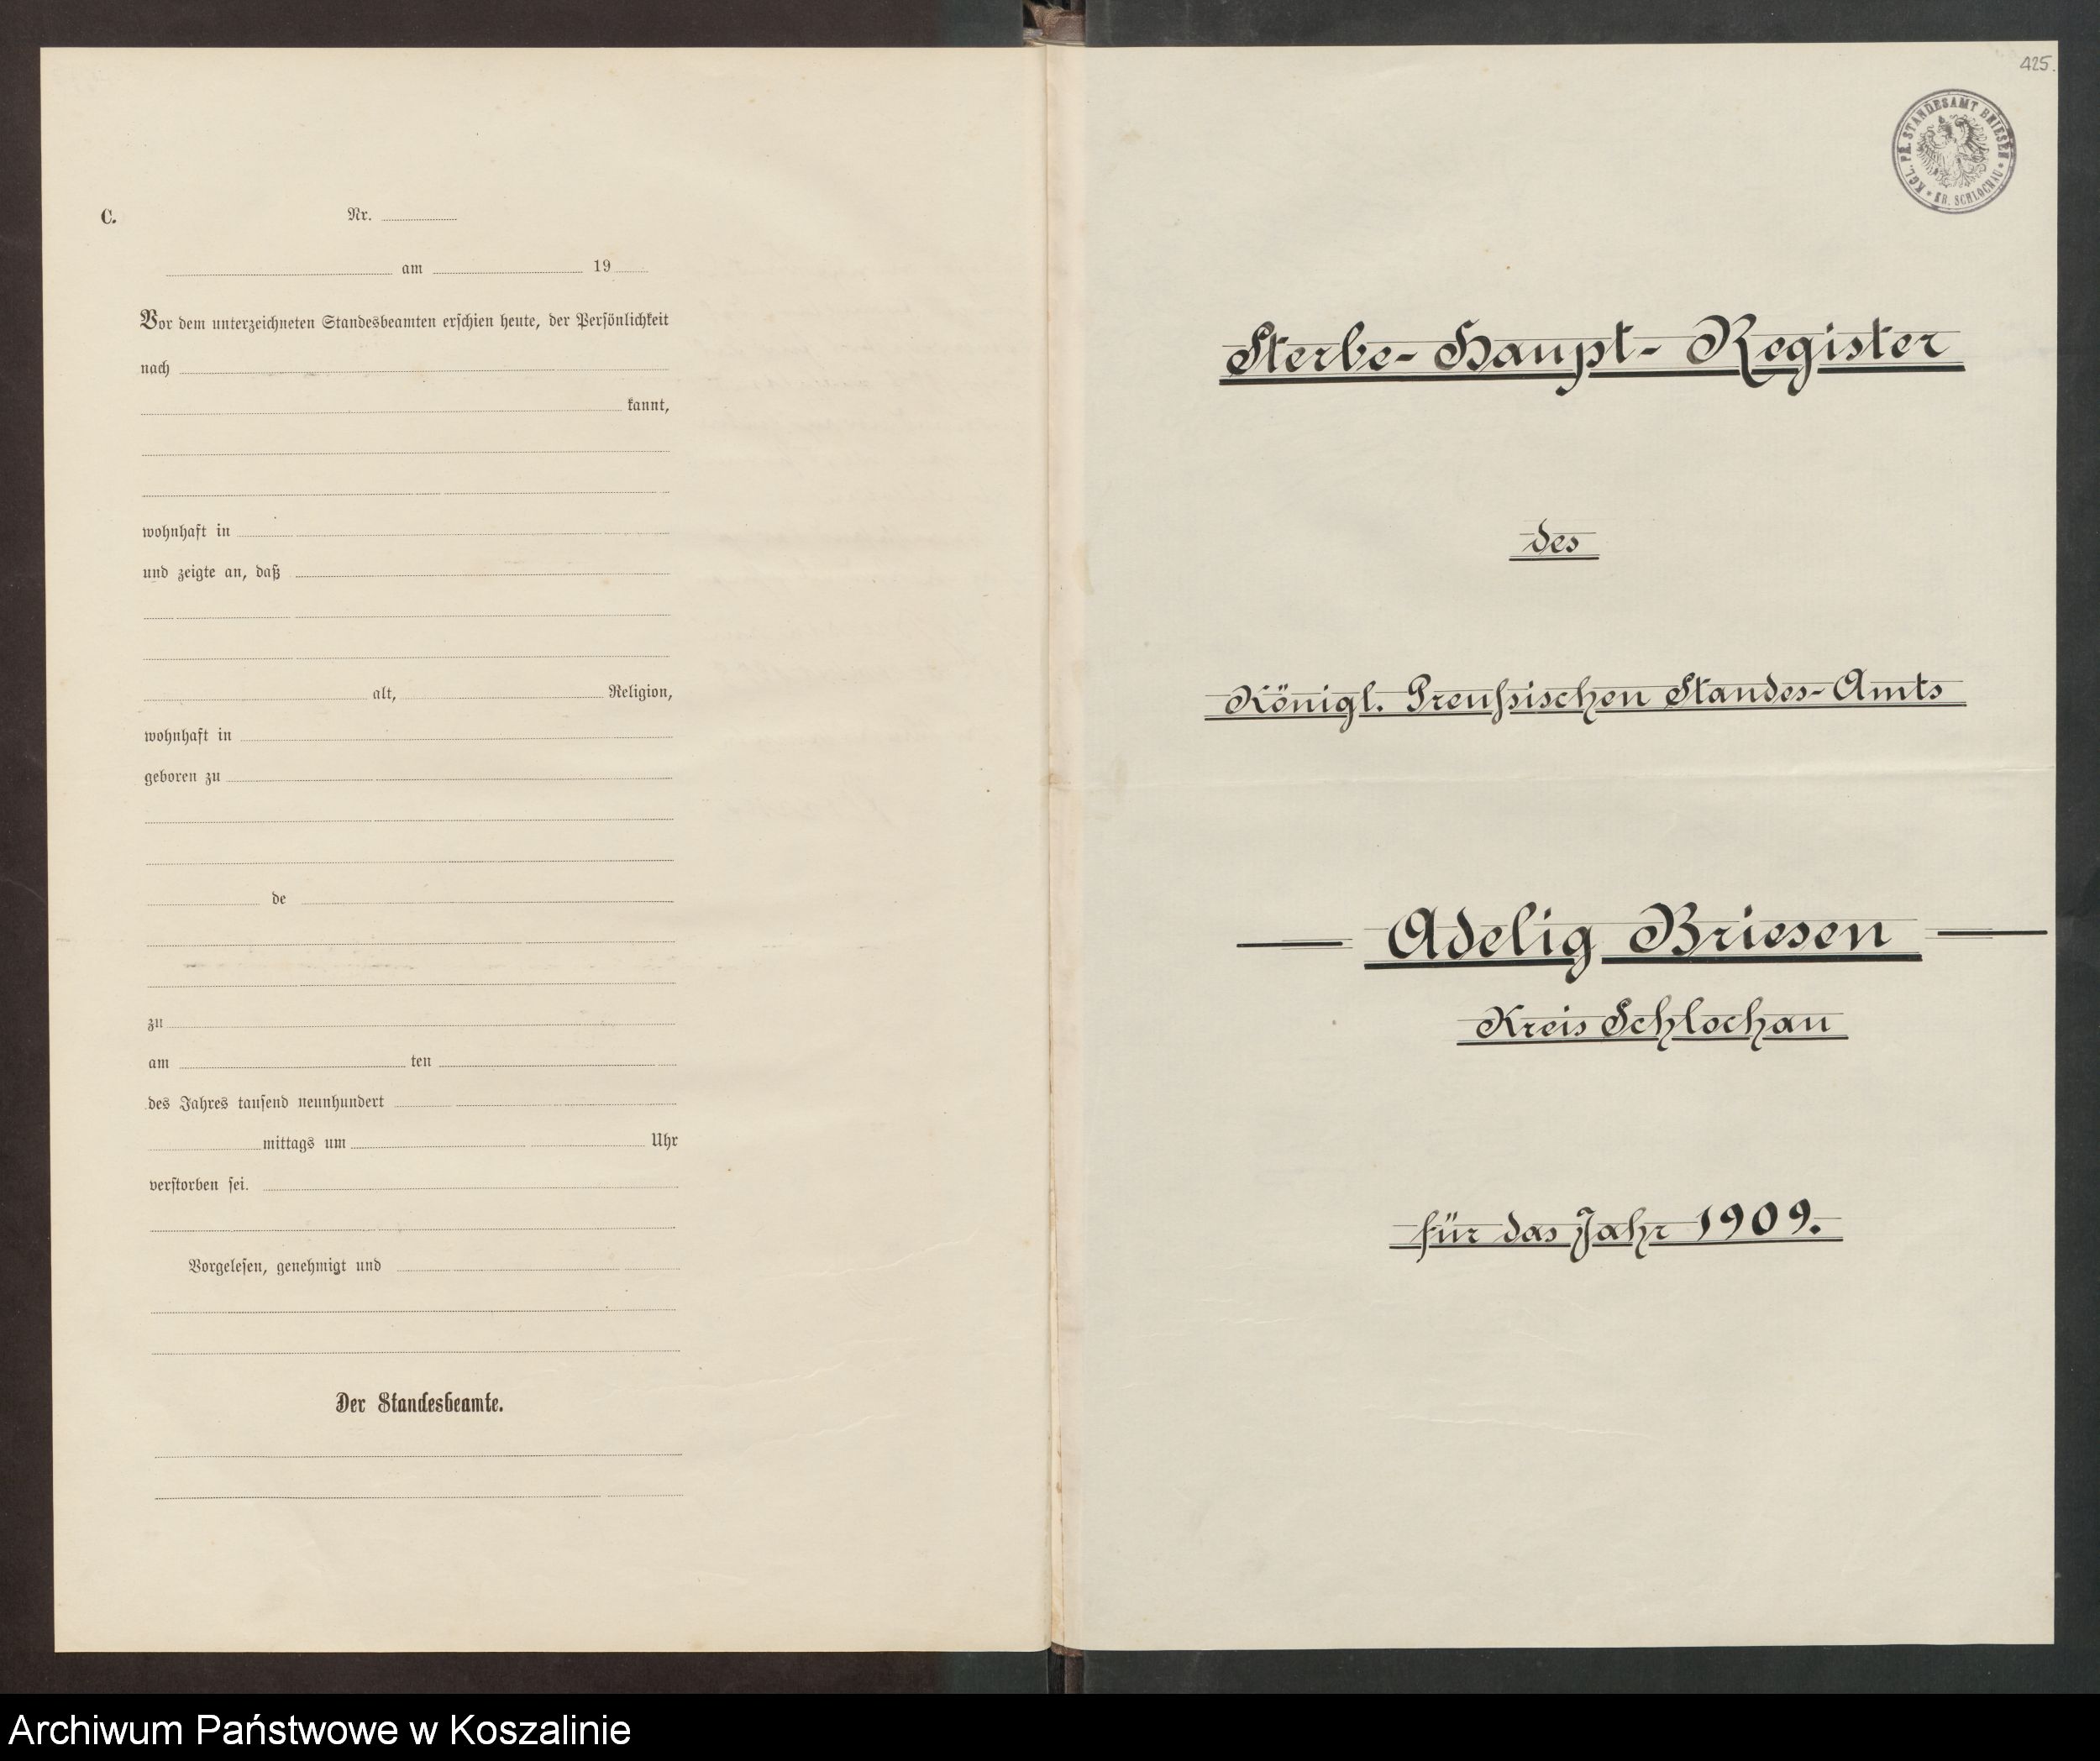 C.
Nr.
am 19
Vor dem unterzeichneten Standesbeamten erschien heute, der Persönlichkeit
nach
kannt,
wohnhaft in
und zeigte an, daß
alt, Religion,
wohnhaft in
geboren zu
de
zu
am ten
des Jahres tausend neunhundert
mittags um Uhr
verstorben sei.
Vorgelesen, genehmigt und
Der Standesbeamte.
425.
KGL. PR. STANDESAMT BRIESEN
* KR. SCHLOCHAU *
Sterbe-Haupt-Register
des
Königl. Preußischen Standes-Amts
— Adelig Briesen —
Kreis Schlochau
für das Jahr 1909.
Archiwum Państwowe w Koszalinie